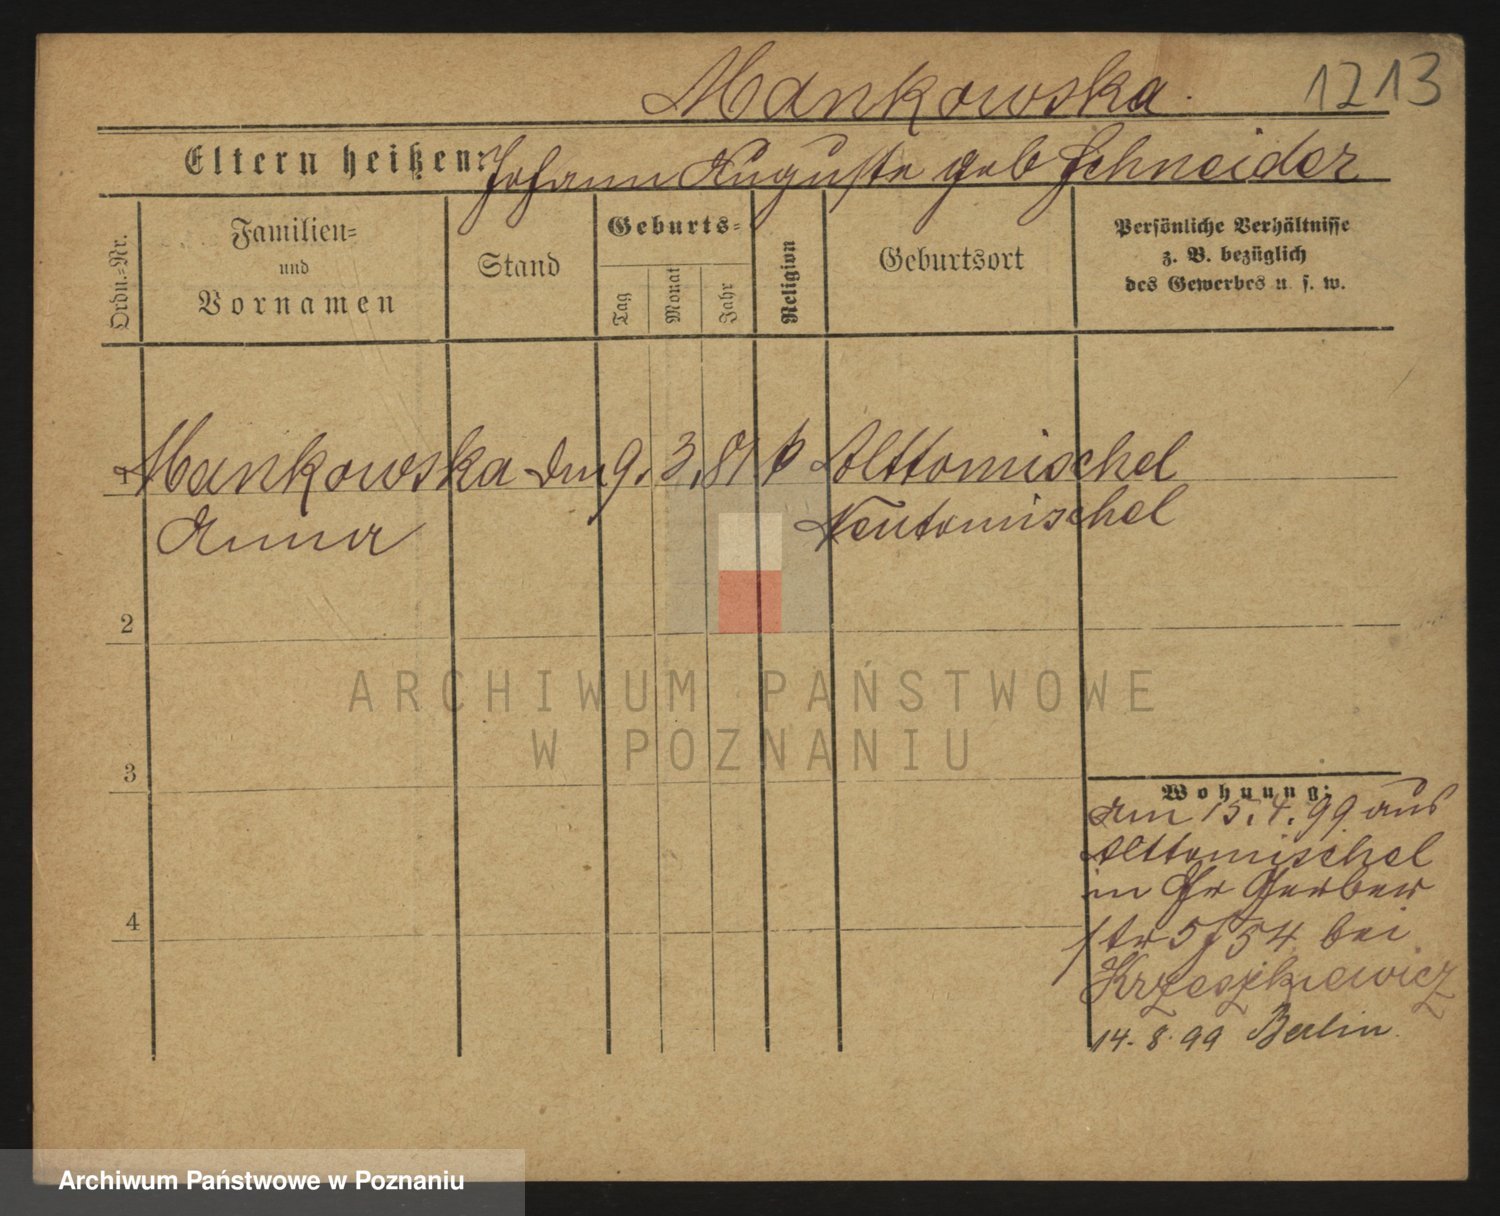 Mankowska.
1213
Eltern heißen: Johann Auguste geb Schneider
Ordn.=Nr.
Familien=
und
Vornamen
Stand
Geburts=
Tag
Monat
Jahr
Religion
Geburtsort
Persönliche Verhältnisse
z. B. bezüglich
des Gewerbes u. s. w.
1 Mankowska Dm 9. 3. 81 k Alttomischel
Anna Neutomischel
2
3
4
Wohnung:
am 15.4.99 aus
Alttomischel
in Gr Gerber
str 54 bei
Krzeszkiewicz
14. 8. 99 Berlin.
ARCHIWUM PAŃSTWOWE
W POZNANIU
Archiwum Państwowe w Poznaniu